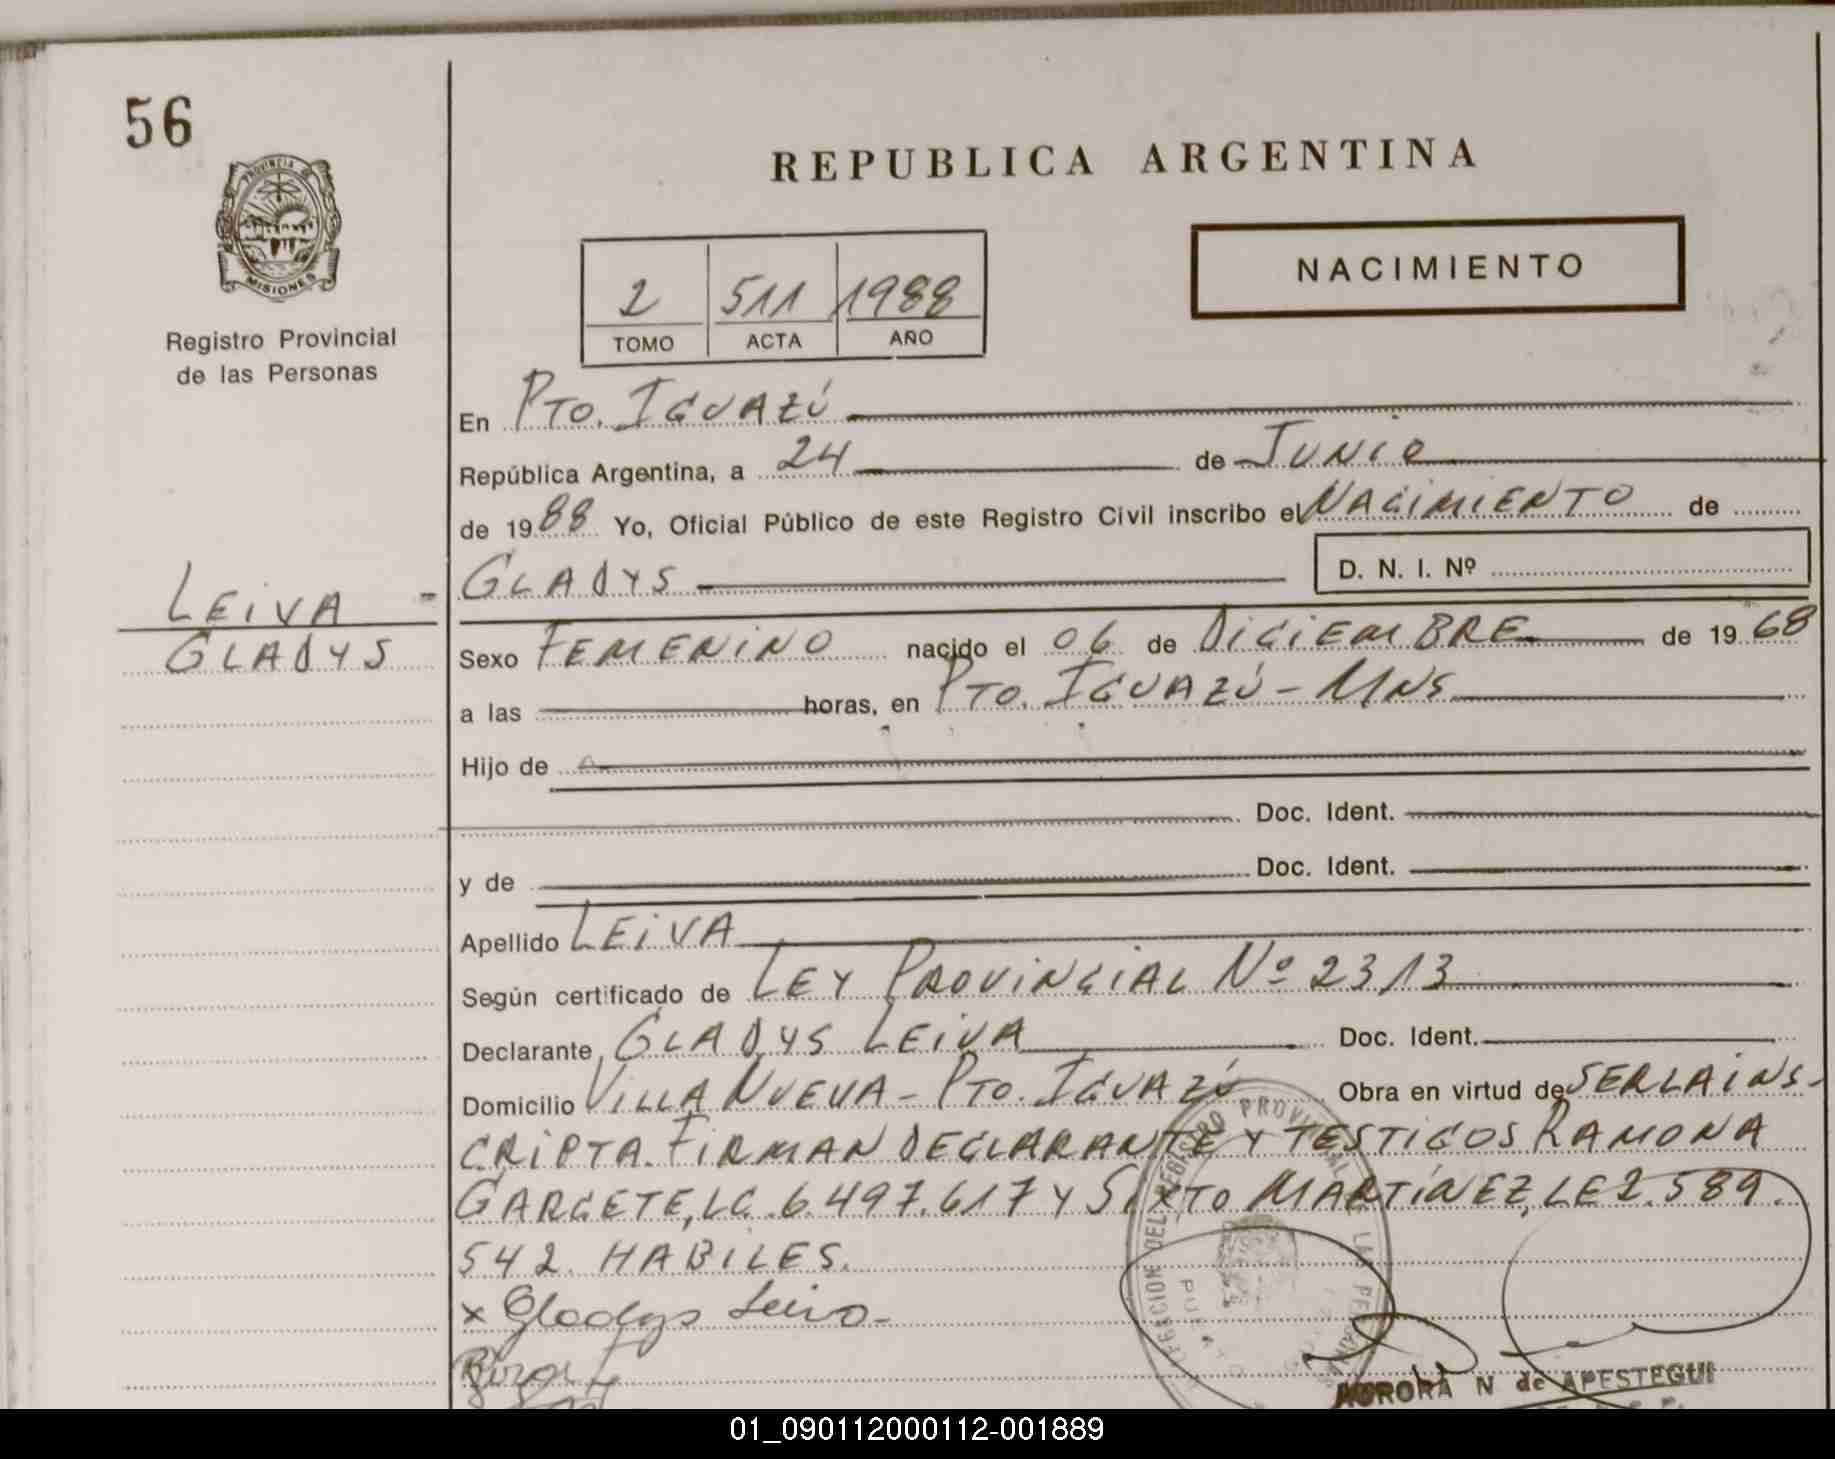 56
REPUBLICA ARGENTINA
PROVINCIA DE
MISIONES
Registro Provincial
de las Personas
NACIMIENTO
2 511 1988
TOMO ACTA AÑO
En Pto. Iguazú
República Argentina, a 24 de Junio
de 1988 Yo, Oficial Público de este Registro Civil inscribo el Nacimiento de
Gladys D. N. I. Nº
Leiva -
Gladys
Sexo Femenino nacido el 06 de Diciembre de 1968
a las horas, en Pto. Iguazú - Mns
Hijo de
Doc. Ident.
y de Doc. Ident.
Apellido Leiva
Según certificado de Ley Provincial Nº 2313
Declarante, Gladys Leiva Doc. Ident.
Domicilio Villa Nueva - Pto. Iguazú Obra en virtud de Ser la ins-
cripta. Firman declarante y testigos Ramona
Gargete, LC. 6.497.617 y Sixto Martínez, LE 2.589.
542. Habiles.
x Gladys Leiva-
AURORA N de APESTEGUI
01_090112000112-001889